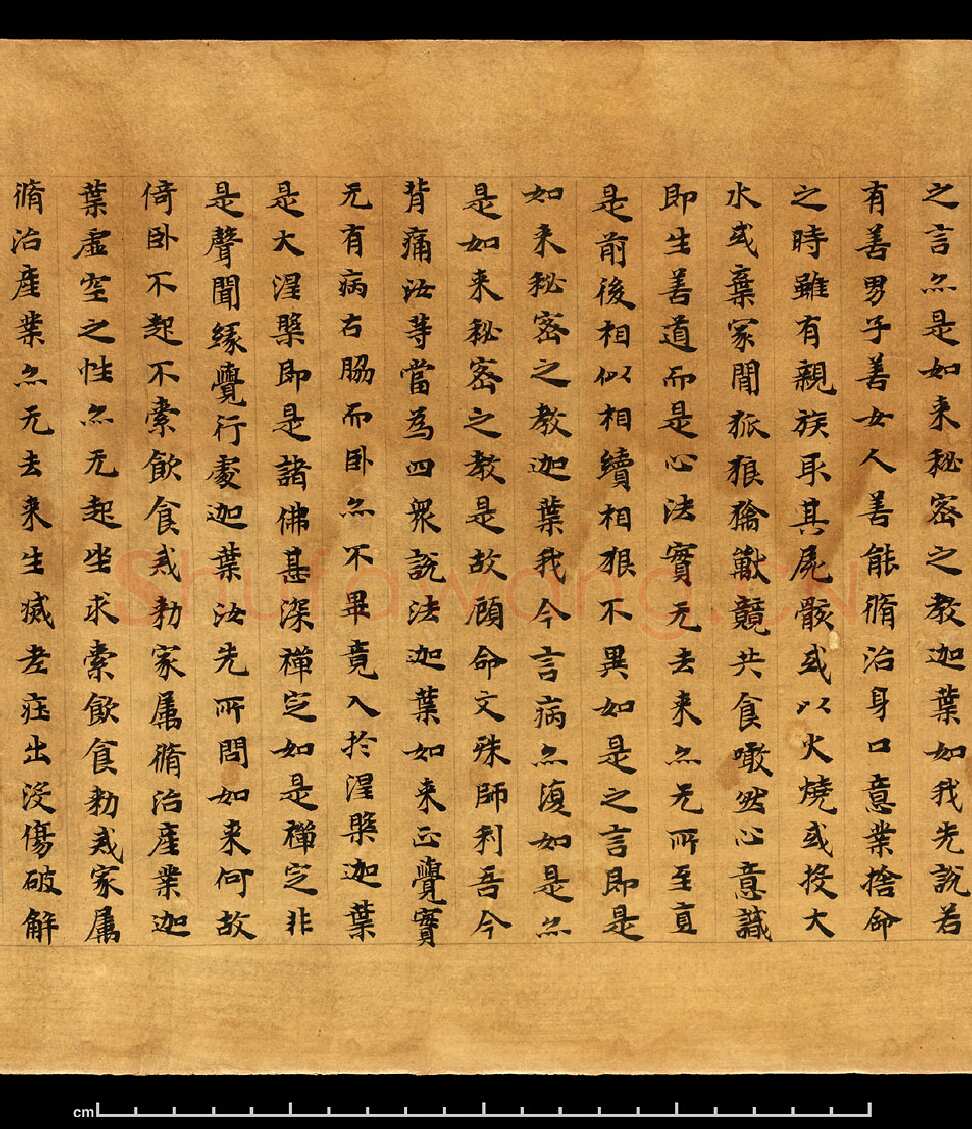 之言亦是如来秘密之教迦葉如我先說若
有善男子善女人善能脩治身口意業捨命
之時雖有親族取其屍骸或以火燒或投大
水或棄冢間狐狼禽獸競共食噉然心意識
即生善道而是心法實无去来亦无所至直
是前後相似相續相狠不異如是之言即是
如来秘密之教迦葉我今言病亦復如是亦
是如来秘密之教是故顧命文殊師利吾今
背痛汝等當為四衆説法迦葉如来正覺實
无有病右脇而卧亦不畢竟入於涅槃迦葉
是大涅槃即是諸佛甚深禪定如是禪定非
是聲聞緣覺行處迦葉汝先所問如来何故
倚卧不起不索飲食戒勑家屬脩治產業迦
葉虛空之性亦无起坐求索飲食勑戒家屬
脩治產業亦无去来生滅老壯出没傷破解
Shufawang.CN
cm